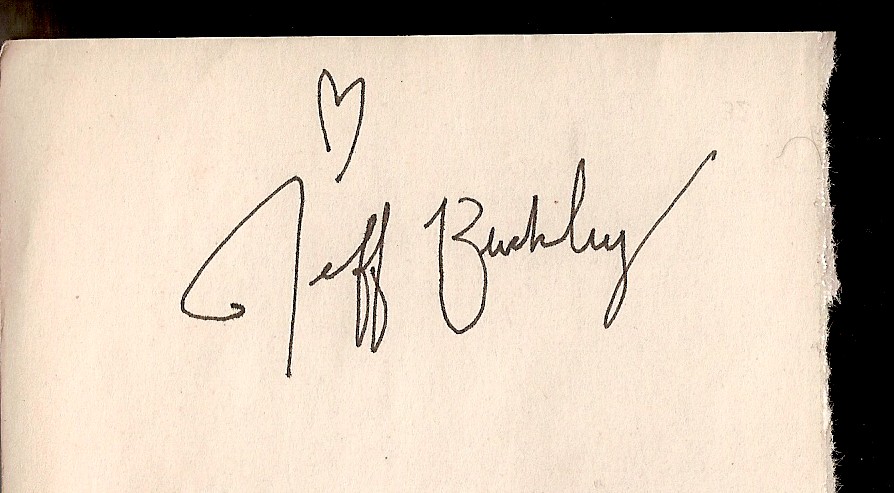 Jeff Buckley